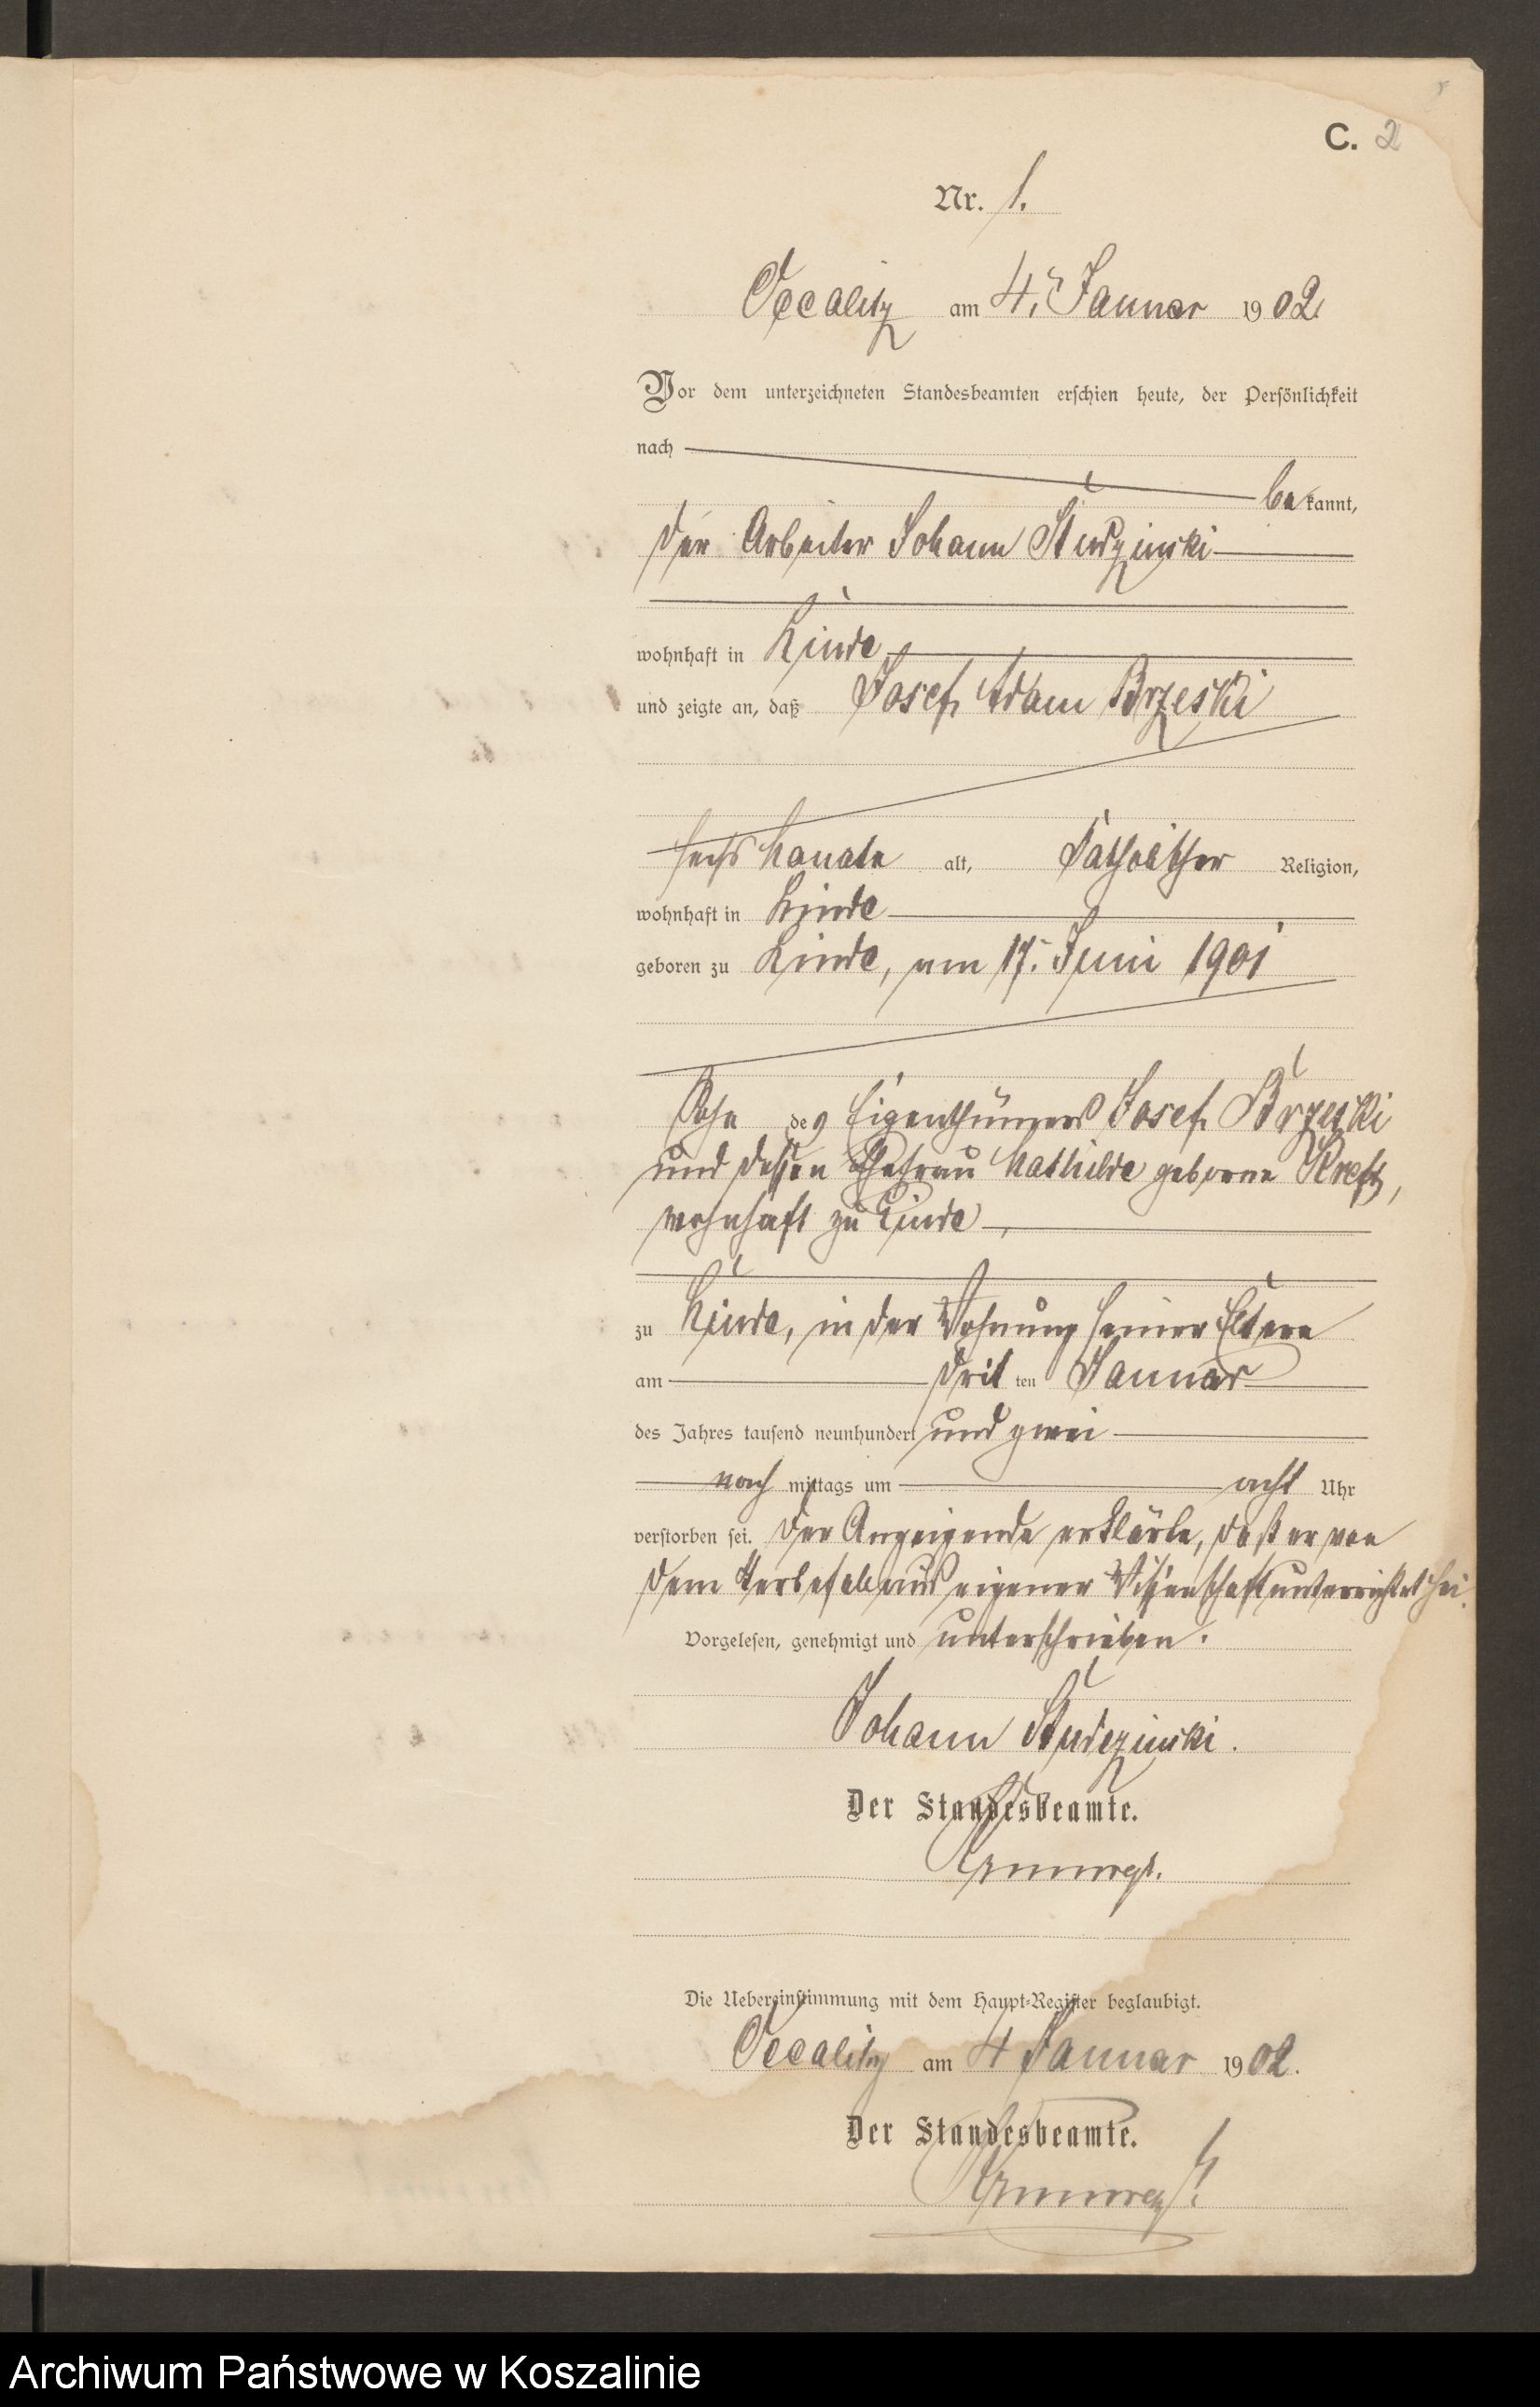 C. 2
Nr. 1.
Occalitz am 4. Januar 1902
Vor dem unterzeichneten Standesbeamten erschien heute, der Persönlichkeit
nach
bekannt,
der Arbeiter Johann Studzinski
wohnhaft in Linde
und zeigte an, daß Josef Adam Brzeski
sechs Monate alt, katholischer Religion,
wohnhaft in Linde
geboren zu Linde, am 17. Juni 1901
Sohn des Eigenthümers Josef Brzeski
und dessen Ehefrau Mathilde geborne Kreft,
wohnhaft zu Linde,
zu Linde, in der Wohnung seiner Eltern
am dritten Januar
des Jahres tausend neunhundert und zwei
nachmittags um acht Uhr
verstorben sei. Der Anzeigende erklärte, daß er von
dem Sterbefall aus eigener Wissenschaft unterrichtet sei.
Vorgelesen, genehmigt und unterschrieben.
Johann Studzinski.
Der Standesbeamte.
Die Uebereinstimmung mit dem Haupt-Register beglaubigt.
Occalitz am 4 Januar 1902.
Der Standesbeamte.
Archiwum Państwowe w Koszalinie